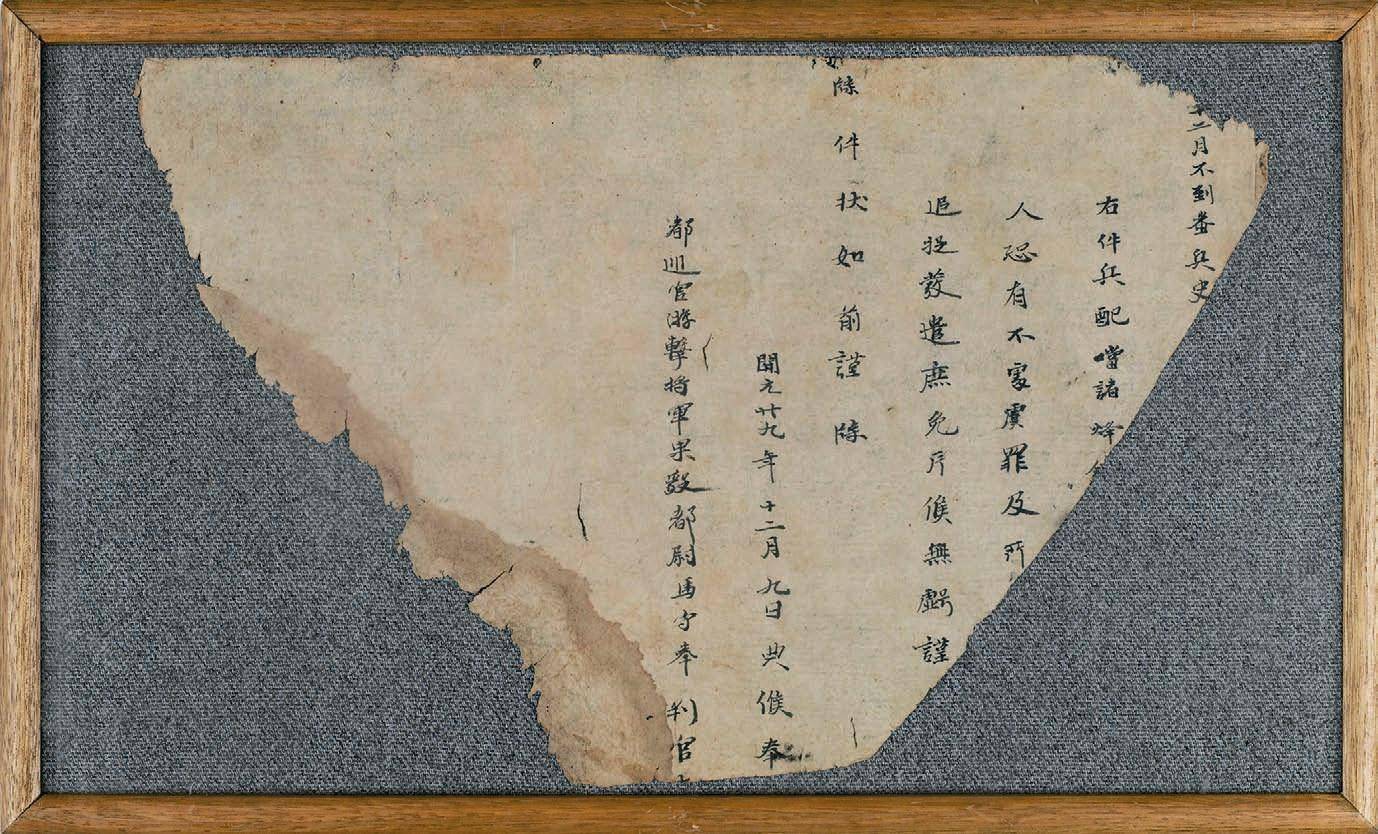 十二月不到番兵史
右件兵配當諸烽
人恐有不虞罪及所
追捉發遣庶免斥候無虧謹
牒件狀如前謹牒
開元廿九年十二月九日典侯奉
都巡官游擊將軍果毅都尉馬守奉判官